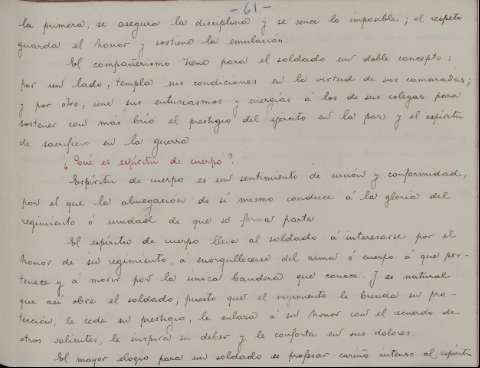 -61-
la primera, se asegura la disciplina y se vence lo imposible; el respeto
guarda el honor y sostiene la emulación.
El compañerismo tiene para el soldado un doble concepto:
por un lado, templa sus condiciones en la virtud de sus camaradas;
y por otro, une sus entusiasmos y energías á los de sus colegas para
sostener con más brío el prestigio del ejército en la paz y el espíritu
de sacrificio en la guerra
¿Qué es espíritu de cuerpo?
Espíritu de cuerpo es un sentimiento de unión y conformidad,
por el que la abnegación de sí mismo conduce á la gloria del
regimiento ó unidad de que se forma parte.
El espíritu de cuerpo lleva al soldado á interesarse por el
honor de su regimiento, á enorgullecerse del arma ó cuerpo á que per-
tenece y á morir por la única bandera que conoce. Y es natural
que así obre el soldado, puesto que el regimiento le brinda su pro-
tección, le cede su prestigio, le enlaza á su honor con el recuerdo de
otros salientes, le inspira su deber y le conforta en sus dolores.
El mayor elogio para un soldado es profesar cariño intenso al espíritu